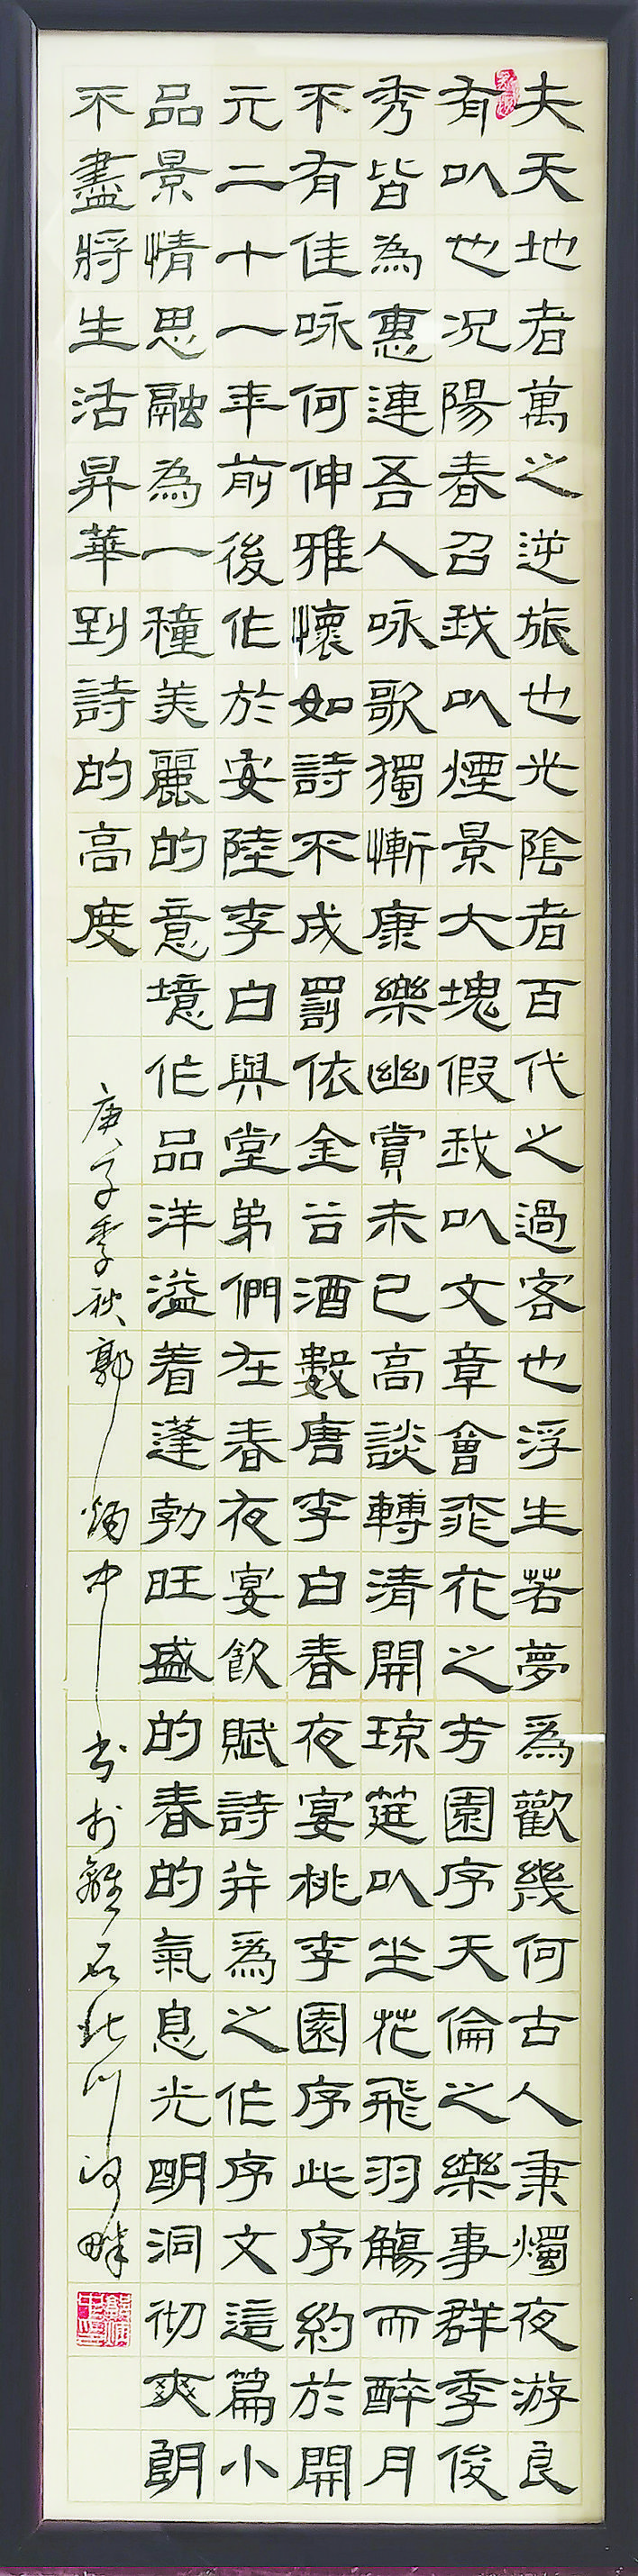 夫天地者萬之逆旅也光陰者百代之過客也浮生若夢爲歡幾何古人秉燭夜游良
有㕥也况陽春召我㕥煙景大塊假我㕥文章會桃花之芳園序天倫之樂事群季俊
秀皆為惠連吾人咏歌獨慚康樂幽賞未已高談轉清開琼筵㕥坐花飛羽觴而醉月
不有佳咏何伸雅懷如詩不成罰依金谷酒數唐李白春夜宴桃李園序此序約於開
元二十一年前後作於安陸李白與堂弟們在春夜宴飲賦詩并爲之作序文這篇小
品景情思融為一種美麗的意境作品洋溢着蓬勃旺盛的春的氣息光明洞彻爽朗
不盡將生活昇華到詩的高度
庚子季秋郭炳中书於離石北川河畔